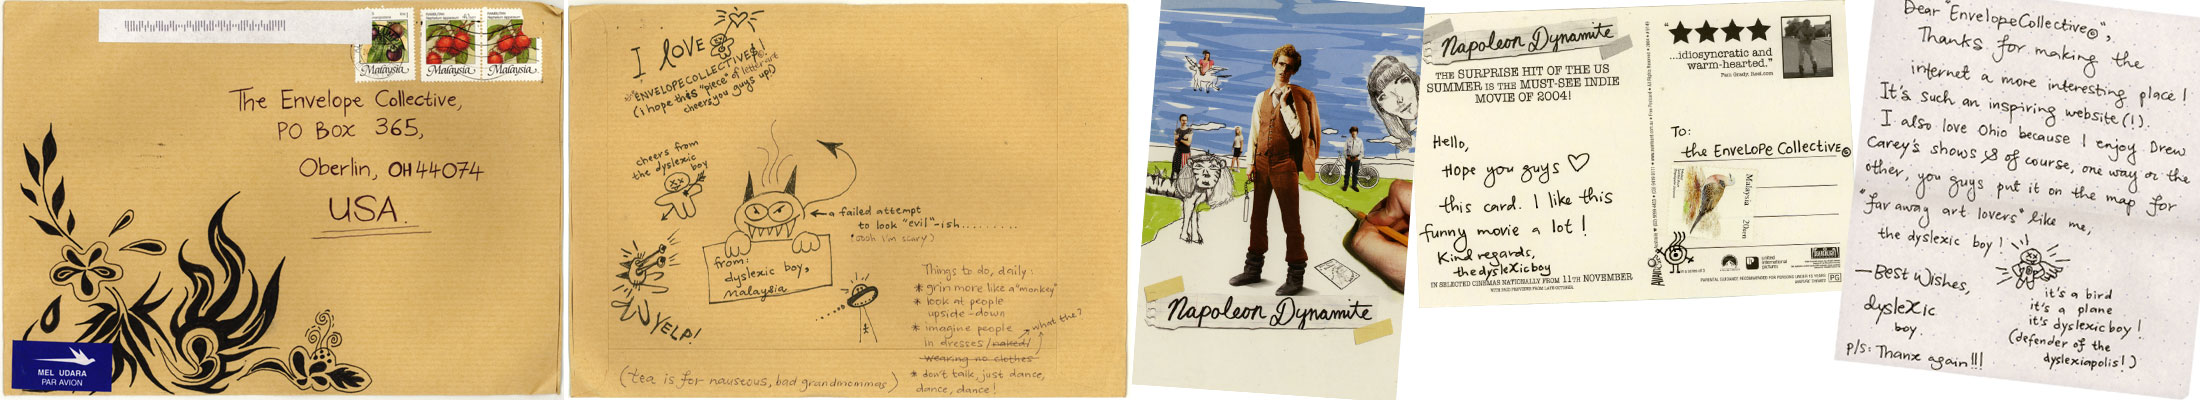 Malaysia
Malaysia
Malaysia
The Envelope Collective,
PO Box 365,
Oberlin, OH 44074
USA.
MEL UDARA
PAR AVION
I LOVE
"ENVELOPECOLLECTIVE©"!
(i hope this "piece" of letter art
cheers you guys up!)
cheers from
the dyslexic
boy
a failed attempt
to look "evil"-ish.........
(oooh i'm scary)
from:
dyslexic boy,
malaysia
YELP!
Things to do, daily:
* grin more like a "monkey"
* look at people
upside-down
* imagine people
in dresses /naked/
wearing no clothes
what the?
* don't talk, just dance,
dance, dance!
(tea is for nauseous, bad grandmommas)
Napoleon Dynamite
Napoleon Dynamite
THE SURPRISE HIT OF THE US
SUMMER IS THE MUST-SEE INDIE
MOVIE OF 2004!
Hello,
Hope you guys ♡
this card. I like this
funny movie a lot!
Kind regards,
the dyslexic boy
IN SELECTED CINEMAS NATIONALLY FROM 11TH NOVEMBER
★★★★
...idiosyncratic and
warm-hearted."
Pam Grady, Reel.com
To:
the Envelope Collective©
Malaysia
20sen
PG
Dear "Envelope Collective©",
Thanks for making the
internet a more interesting place!
It's such an inspiring website(!).
I also love Ohio because I enjoy Drew
Carey's shows & of course, one way or the
other, you guys put it on the map for
"far away art lovers" like me,
the dyslexic boy!
—Best Wishes,
dyslexic
boy.
it's a bird
it's a plane
it's dyslexic boy!
(defender of the
dyslexiapolis!)
P/s: Thanx again!!!